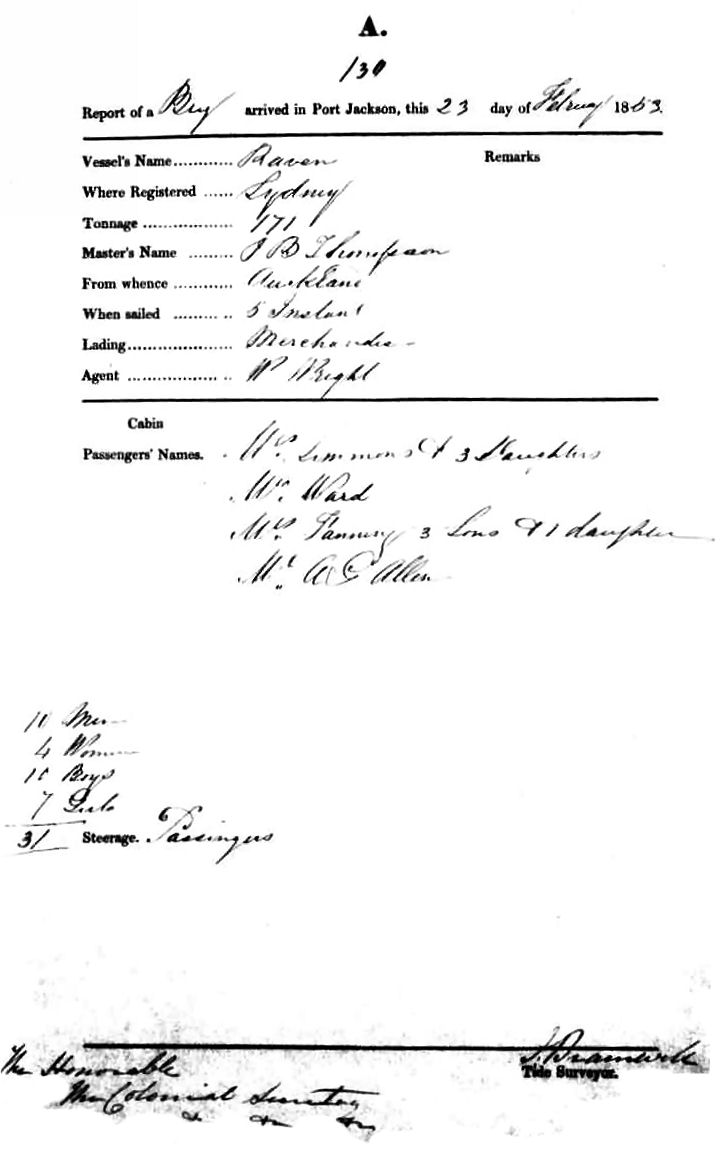 A.
130
Report of a Brig arrived in Port Jackson, this 23 day of February 1853.
Vessel's Name............ Raven Remarks
Where Registered ...... Sydney
Tonnage .................. 171
Master's Name ......... J B Thompson
From whence ............ Auckland
When sailed ......... .. 5 Instant
Lading..................... Merchandise
Agent .................. .. W Wright
Cabin
Passengers' Names. Mrs. Simmons & 3 Daughters
Ward
Mrs. Fanning 3 Sons & 1 daughter
Mr. A G Allen
10 Men
4 Women
10 Boys
7 Girls
31 Steerage. Passingers
J. Bramwell
Tide Surveyor.
The Honorable
The Colonial Secretary
&c &c &c